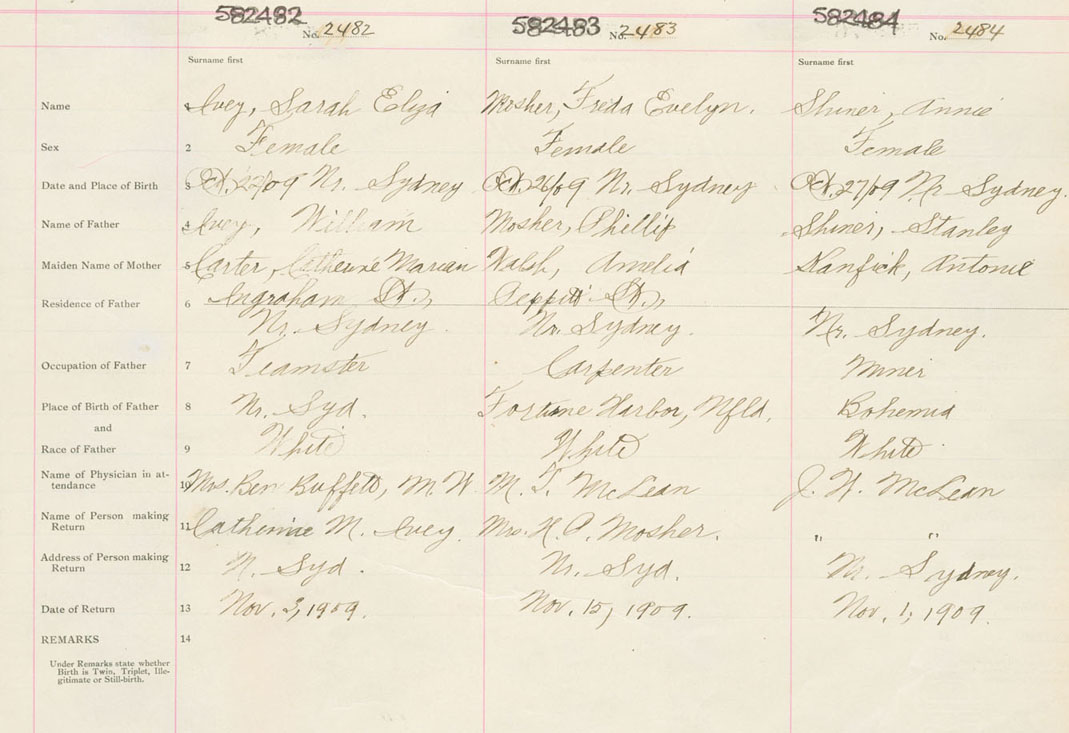 582482 582483 582484
No. 2482 No. 2483 No. 2484
Surname first Surname first Surname first
Name 1 Ivey, Sarah Eliza Mosher, Freda Evelyn. Shiner, Annie
Sex 2 Female Female Female
Date and Place of Birth 3 Oct. 22/09 Nr. Sydney Oct. 26/09 Nr. Sydney Oct. 27/09 Nr Sydney.
Name of Father 4 Ivey, William Mosher, Phillip Shiner, Stanley
Maiden Name of Mother 5 Carter, Catherine Marian Walsh, Amelia Antonie
Residence of Father 6 Ingraham St., St.,
Nr. Sydney Nr. Sydney. Nr. Sydney.
Occupation of Father 7 Teamster Carpenter Miner
Place of Birth of Father 8 Nr. Syd. Fortune Harbor, Nfld. Bohemia
and
Race of Father 9 White White White
Name of Physician in at-
tendance 10 Mrs. Ben Buffett, M. W. M. T. McLean J. W. McLean
Name of Person making
Return 11 Catherine M. Ivey. Mrs. H. P. Mosher. " "
Address of Person making
Return 12 N. Syd. Nr. Syd. Nr. Sydney.
Date of Return 13 Nov. 3, 1909. Nov. 15, 1909. Nov. 1, 1909.
REMARKS 14
Under Remarks state whether
Birth is Twin, Triplet, Ille-
gitimate or Still-birth.